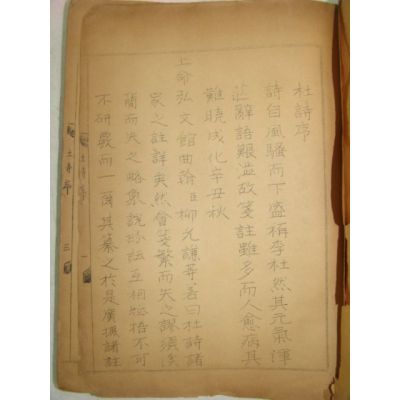 杜詩序
詩自風騷而下盛稱李杜然其元氣渾
茫辭語艱澁故箋註雖多而人愈病其
難曉成化辛丑秋
上命弘文館典翰臣柳允謙等若曰杜詩諸
家之註詳矣然會箋繁而失之謬須溪
簡而失之略衆說紛紜互相牴牾不可
不研覈而一爾其纂之於是廣摭諸註
序 一
序 三